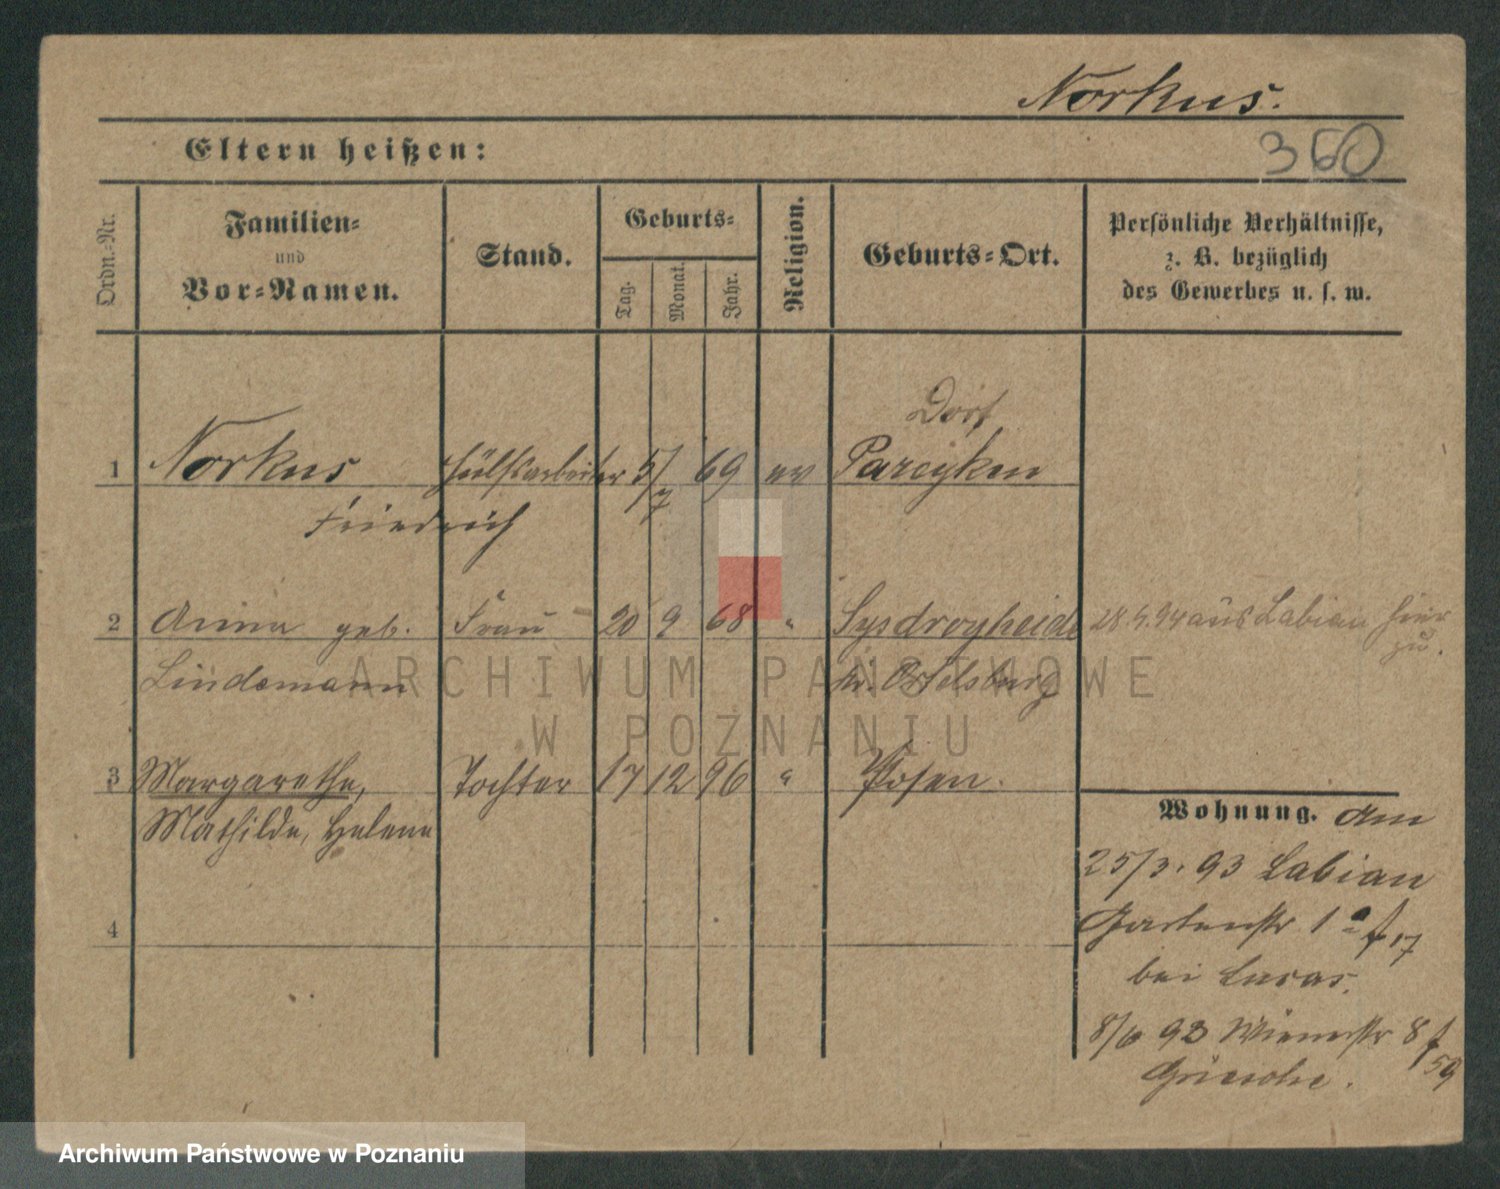 Norkus.
Eltern heißen:
360
Ordn.-Nr.
Familien-
und
Vor-Namen.
Stand.
Geburts-
Tag.
Monat.
Jahr.
Religion.
Geburts-Ort.
Persönliche Verhältnisse,
z. B. bezüglich
des Gewerbes u. s. w.
Dorf
1 Norkus Hülfsarbeiter 5/7 69 ev Parcyken
Friedrich
2 Anna geb. Frau 20 9 68 " Sysdroyheide 28.4.94 aus Labian hier
zu.
Lindemann Kr. Ortelsburg
3 Margarethe, Tochter 17 12 96 " Posen.
Mathilde, Helene
4
Wohnung. Am
25/3. 93 Labian
Gartenstr 1a f 17
bei
8/6 93 Wienerstr 8 f
59
ARCHIWUM PAŃSTWOWE
W POZNANIU
Archiwum Państwowe w Poznaniu